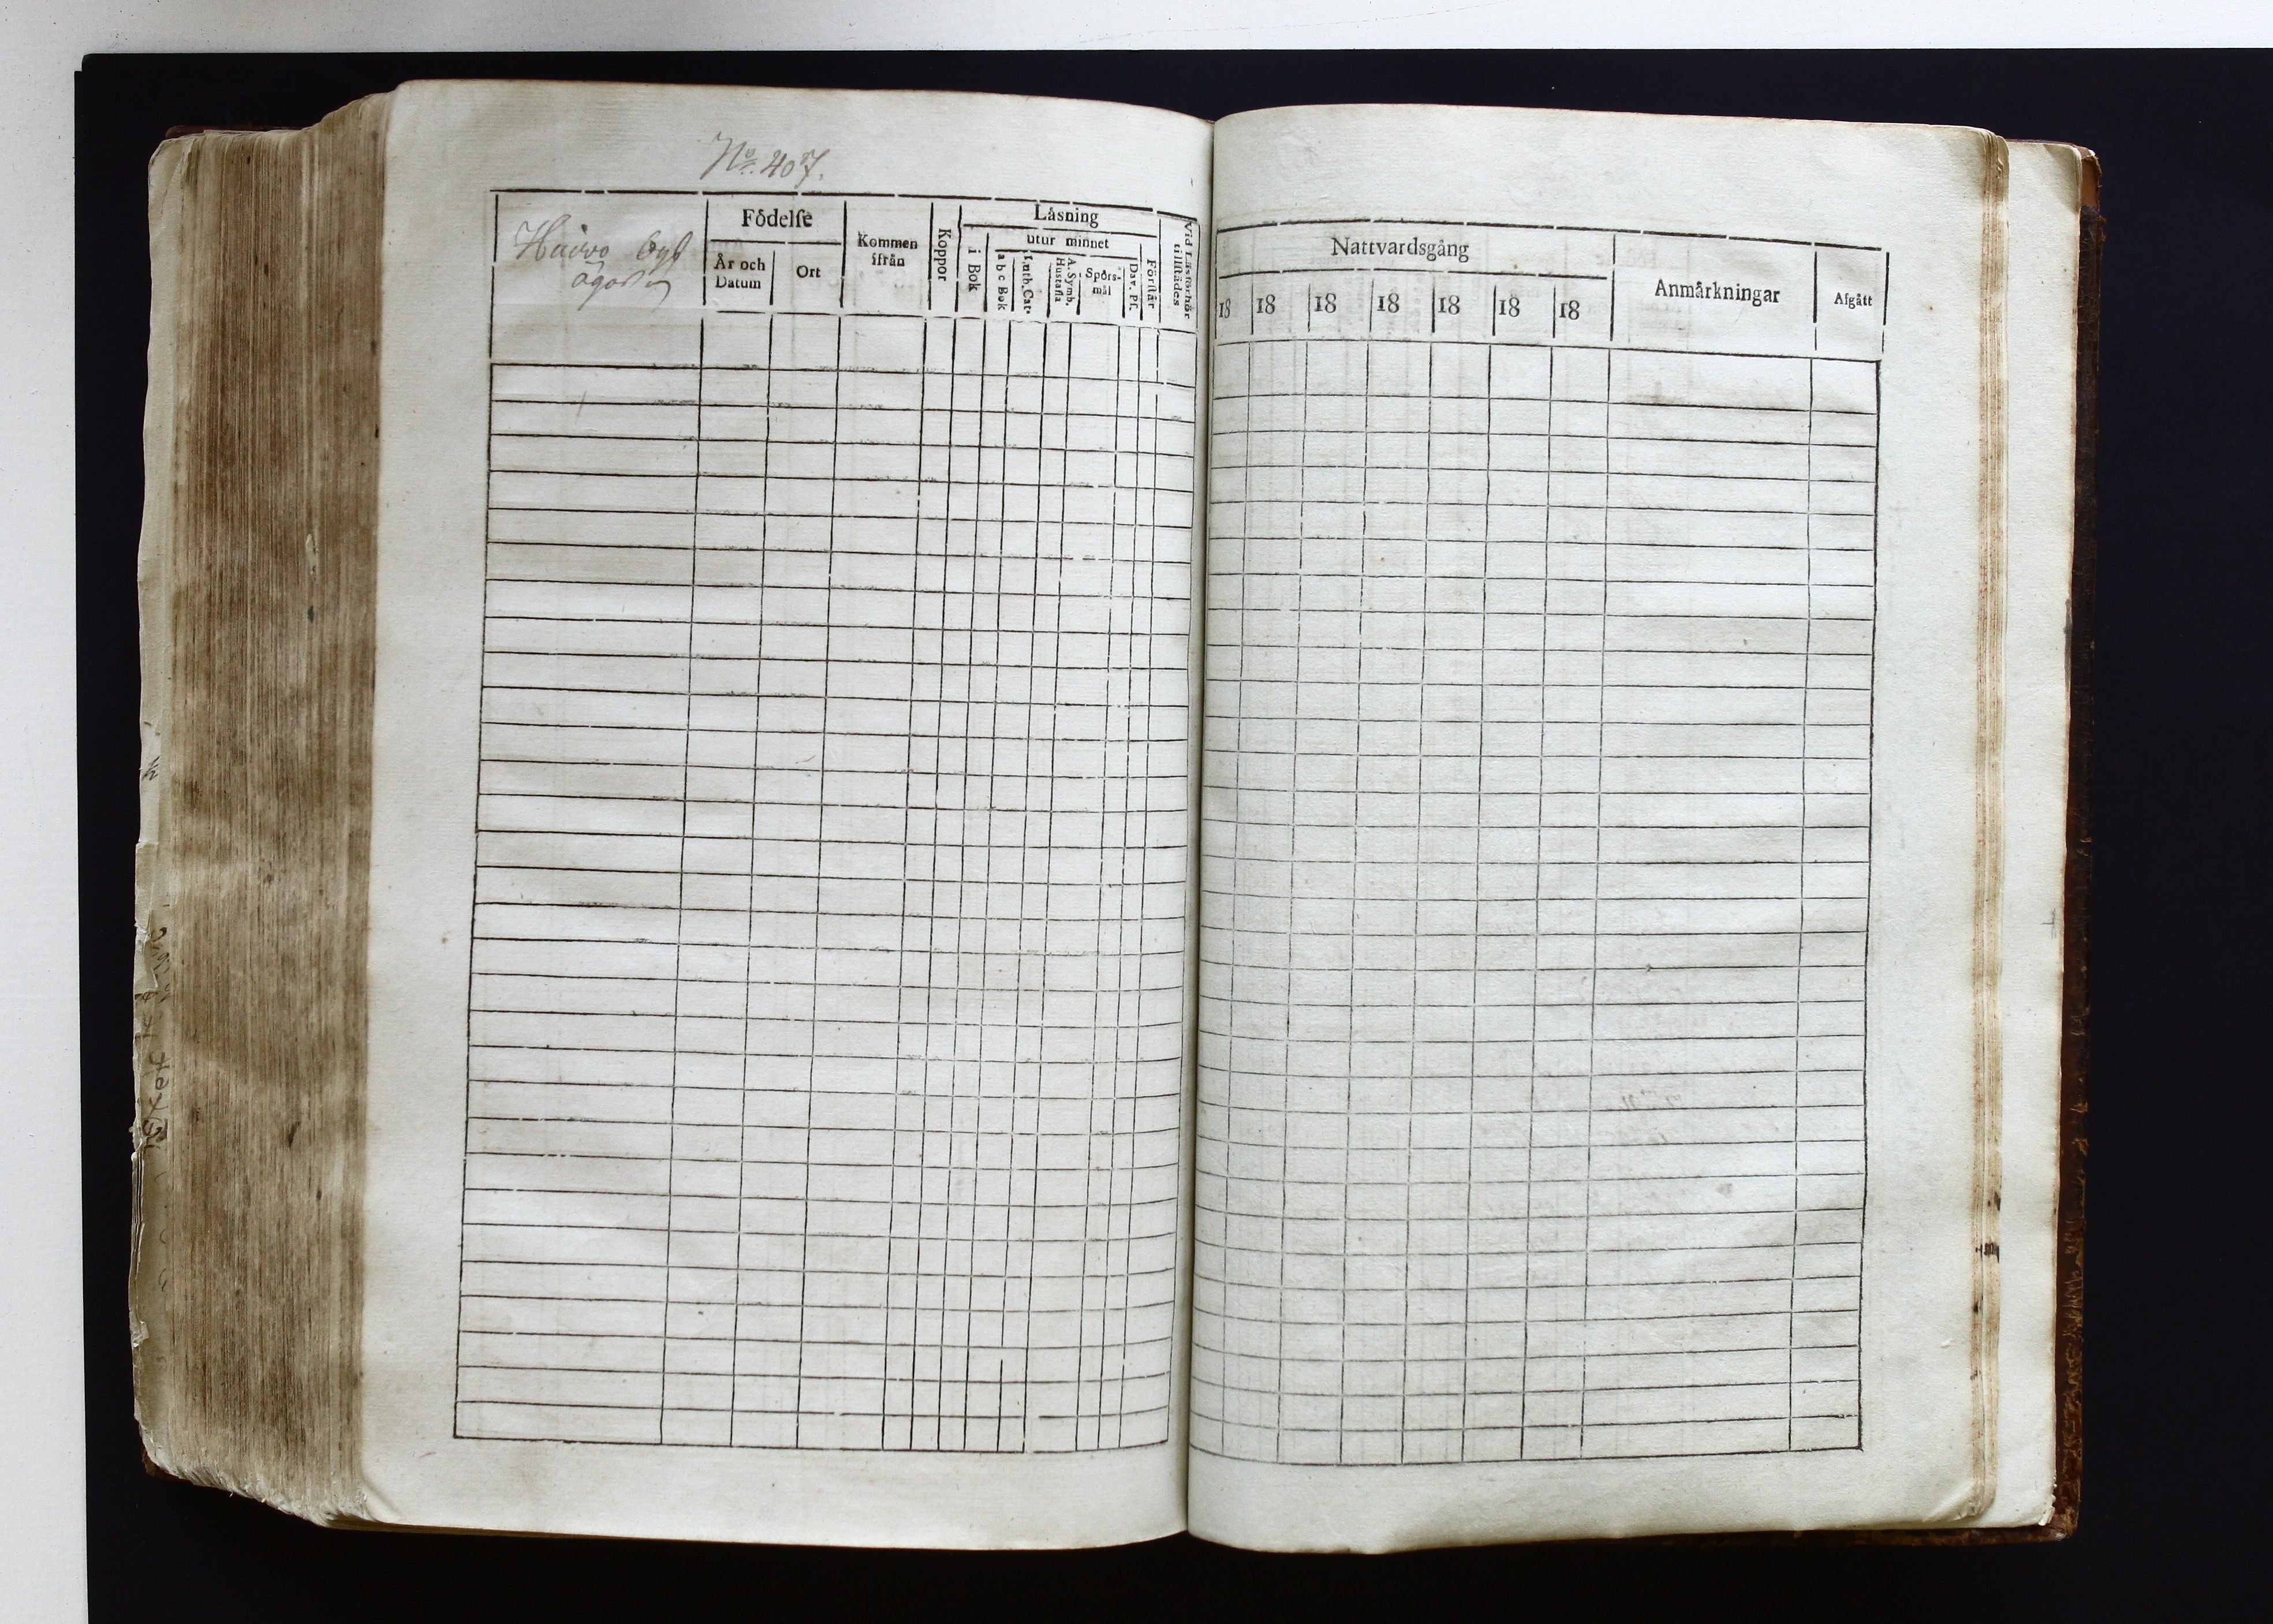 No. 407.
Födelse
Läsning
Koppor
Kommen ifrån
utur minnet
År och Datum
Ort
i Bok
a b c Bok
Luth. Cat.
A. Symb. Hustafla
Spörs-mål
Dav. Ps.
Förstår
Vid Läsförhör tillstädes
Nattvardsgång
Anmärkningar
Afgått
18 18 18 18 18 18 18